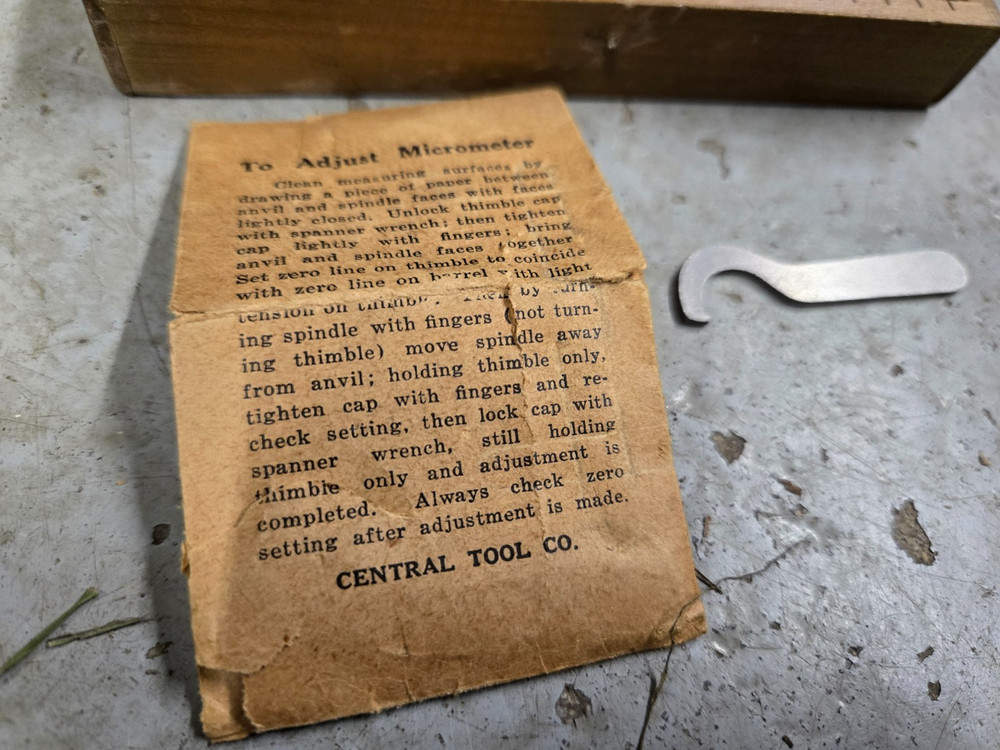 To Adjust Micrometer
Clean measuring surfaces by
drawing a piece of paper between
anvil and spindle faces with faces
lightly closed. Unlock thimble cap
with spanner wrench; then tighten
cap lightly with fingers; bring
anvil and spindle faces together.
Set zero line on thimble to coincide
with zero line on barrel with light
tension on thimble. Then by turn-
ing spindle with fingers (not turn-
ing thimble) move spindle away
from anvil; holding thimble only,
tighten cap with fingers and re-
check setting, then lock cap with
spanner wrench, still holding
thimble only and adjustment is
completed. Always check zero
setting after adjustment is made.
CENTRAL TOOL CO.